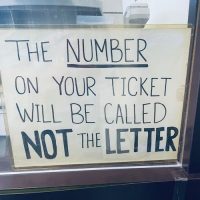 THE NUMBER
ON YOUR TICKET
WILL BE CALLED
NOT THE LETTER